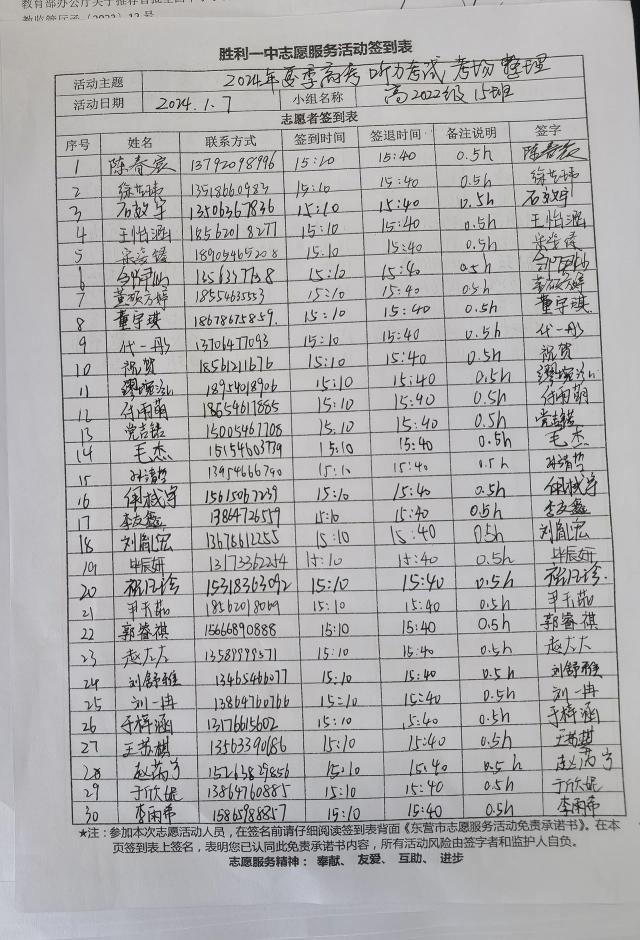 胜利一中志愿服务活动签到表
活动主题 2024年夏季高考听力考试考场整理
活动日期 2024.1.7 小组名称 高2022级15班
志愿者签到表
序号 姓名 联系方式 签到时间 签退时间 备注说明 签字
1 陈春宸 13792098996 15:10 15:40 0.5h
2 13518660983 15:10 15:40 0.5h
3 石效宇 13506367836 15:10 15:40 0.5h 石效宇
4 王怡涵 18562018277 15:10 15:40 0.5h 王怡涵
5 18905465208 15:10 15:40 0.5h
6 15:10 15:40 0.5h
7 1855463553 15:10 15:40 0.5h
8 董宇琪 18678675859. 15:10 15:40 0.5h 董宇琪
9 代一彤 13706477093 15:10 15:40 0.5h 代一彤
10 祝贺 18561211676 15:10 15:40 0.5h 祝贺
11 18954018906 15:10 15:40 0.5h
12 付雨萌 18654617885 15:10 15:40 0.5h 付雨萌
13 15005467708 15:10 15:40 0.5h
14 毛杰 15154603779 15:10 15:40 0.5h 毛杰
15 孙清哲 13954666790 15:10 15:40 0.5h 孙清哲
16 15615067239 15:10 15:40 0.5h
17 李友鑫 13864726559 15:10 15:40 0.5h 李友鑫
18 刘胤宏 13676612255 15:10 15:40 0.5h 刘胤宏
19 毕辰妍 13173362254 15:10 15:40 0.5h 毕辰妍
20 15318363092 15:10 15:40 0.5h
21 18562018069 15:10 15:40 0.5h
22 郭睿祺 15666890888 15:10 15:40 0.5h 郭睿祺
23 13589999571 15:10 15:40 0.5h
24 刘舒雅 13465466077 15:10 15:40 0.5h 刘舒雅
25 刘一冉 13864760766 15:10 15:40 0.5h 刘一冉
26 于梓涵 13176615602 15:10 15:40 0.5h 于梓涵
27 王苏祺 13563390686 15:10 15:40 0.5h
28 15263829856 15:10 15:40 0.5h
29 于欣妮 13864760885 15:10 15:40 0.5h 于欣妮
30 李雨希 15865988857 15:10 15:40 0.5h 李雨希
★注：参加本次志愿活动人员，在签名前请仔细阅读签到表背面《东营市志愿服务活动免责承诺书》。在本
页签到表上签名，表明您已认同此免责承诺书内容，所有活动风险由签字者和监护人自负。
志愿服务精神： 奉献、 友爱、 互助、 进步